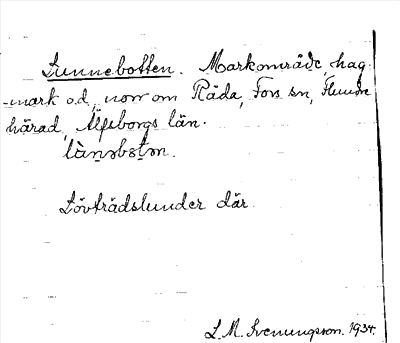 Lunnebotten. Markområde, hag-
mark o.d., norr om Råda, Fors sn, Flundre
härad, Älfsborgs län.
lànəbɔtən.
Lövträdslunder där.
L. M. Svenungsson. 1934.